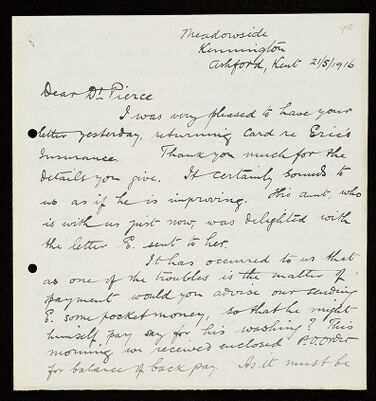 Meadowside
Kennington
Ashford, Kent 21/5/1916
Dear Dr Pierce
I was very pleased to have your
letter yesterday, returning Card re Eric's
Insurance. Thank you much for the
details you give. It certainly sounds to
us as if he is improving. His aunt, who
is with us just now, was delighted with
the letter E. sent to her.
It has occurred to us that
as one of the troubles is the matter of
payment would you advise our sending
E. some pocket money, so that he might
himself pay say for his washing? This
morning we received enclosed P.O. Order
for balance of back pay. As it must be